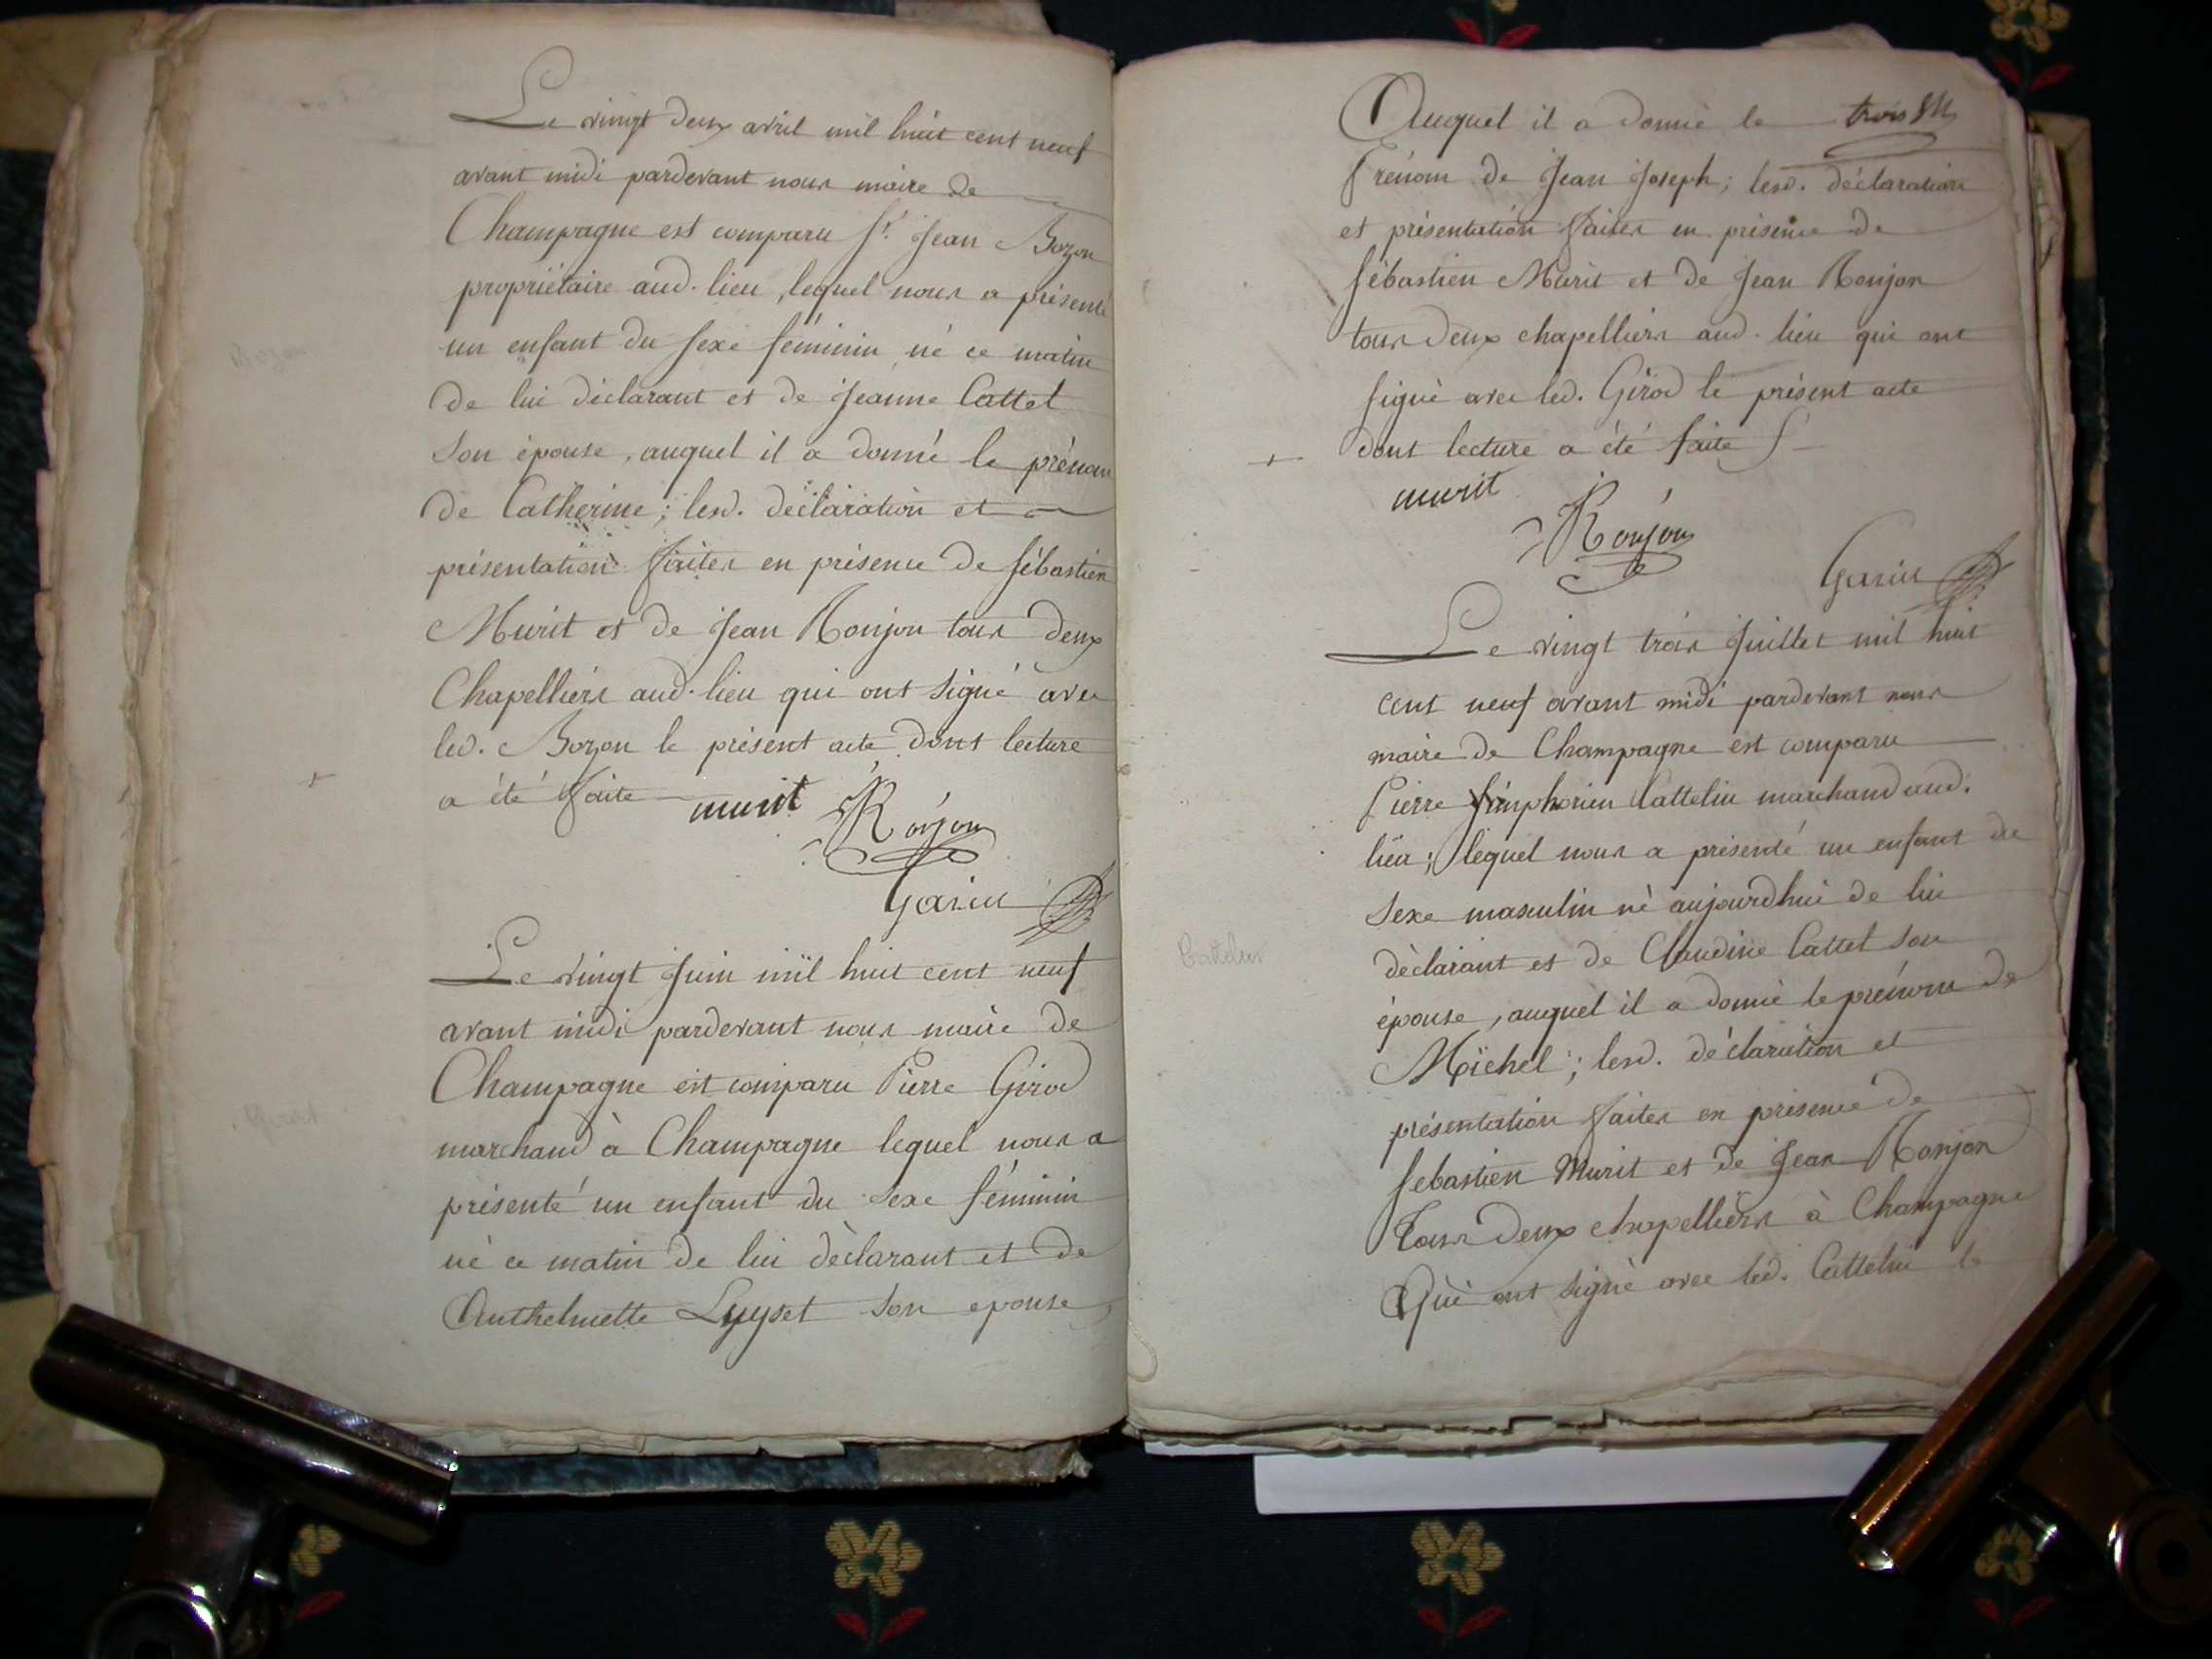 Le vingt deux avril mil huit cent neuf
avant midi pardevant nous maire de
Champagne est comparu Sr. Jean Bozon
propriétaire aud. lieu, lequel nous a présenté
un enfant du sexe féminin né ce matin
de lui déclarant et de Jeanne Cattet
son épouse, auquel il a donné le prénom
de Catherine; lesd. déclaration et
présentation faites en présence de Sébastien
Murit et de Jean Ronjon tous deux
Chapelliers aud. lieu qui ont signé avec
led. Bozon le présent acte dont lecture
a été faite
murit Ronjon
Garin
Le vingt Juin mil huit cent neuf
avant midi pardevant nous maire de
Champagne est comparu Pierre Girod
marchand à Champagne lequel nous a
présenté un enfant du sexe féminin
né ce matin de lui déclarant et de
Anthelmette Luyset son epouse,
Auquel il a donné le trois
Prénom de Jean Joseph; lesd. déclaration
et présentation faites en présence de
Sébastien Murit et de Jean Ronjon
tous deux chapelliers aud. lieu qui ont
signé avec led. Girod le présent acte
dont lecture a été faite
murit
Ronjon
Garin
Le vingt trois Juillet mil huit
cent neuf avant midi pardevant nous
maire de Champagne est comparu
Pierre Simphorien Cattelin marchand aud.
lieu; lequel nous a présenté un enfant du
sexe masculin né aujourdhui de lui
déclarant et de Claudine Cattet son
épouse, auquel il a donné le prénom de
Michel; lesd. déclaration et
présentation faites en présence de
Sebastien Murit et de Jean Ronjon
Tous deux chapelliers à Champagne
Qui ont signé avec led. Cattelin le